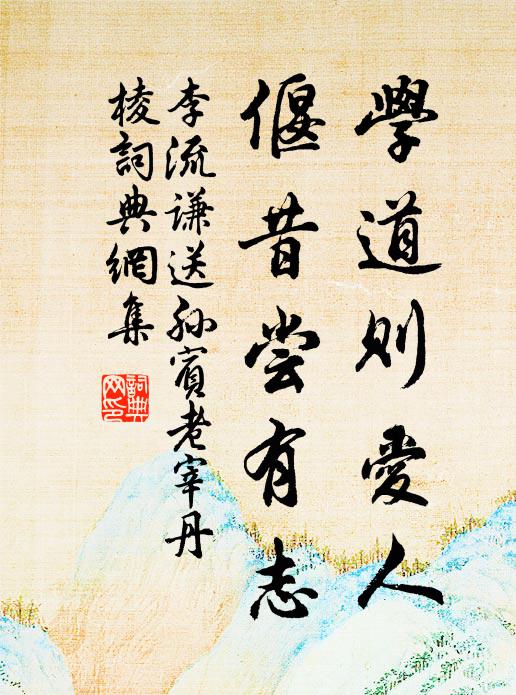 學道則愛人
偃昔嘗有志
李流謙送孙賓老宰丹
棱詞典網集
詞典
网印